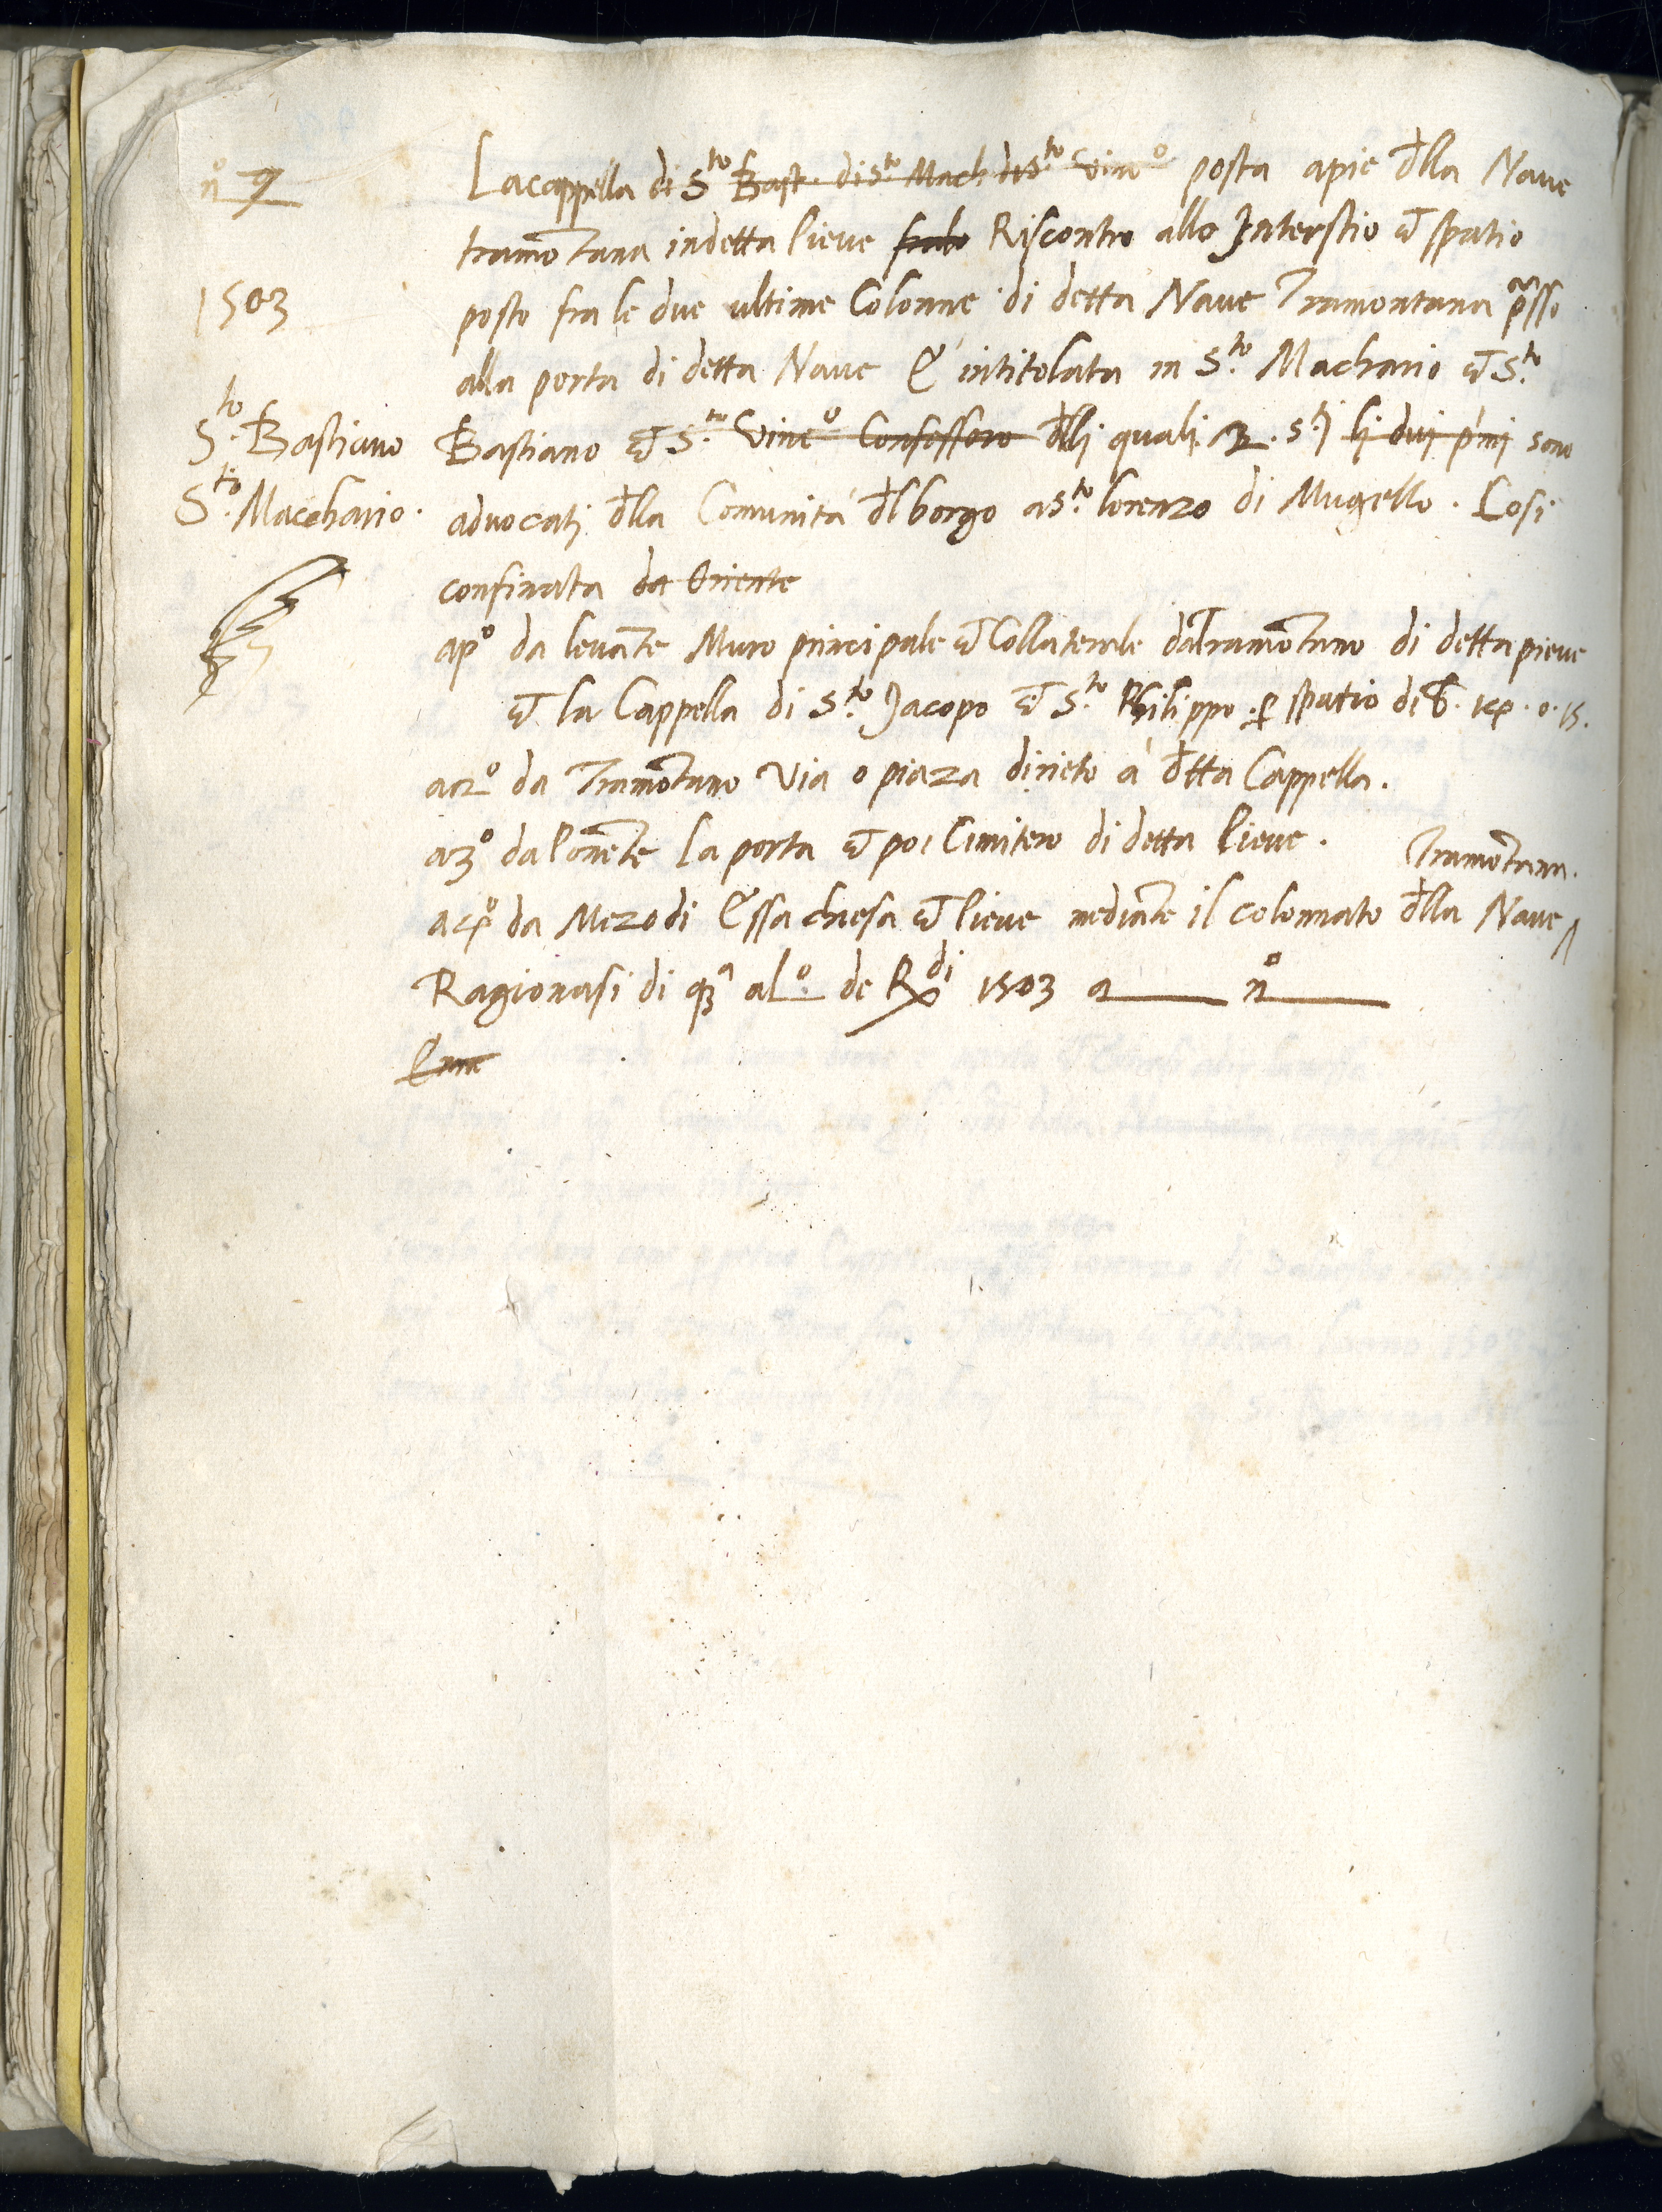 n° 9
Lacappella di S.to Bast. di S.to Mach di S.to Vinc° posta apie dlla Naue
tramōtana indetta Pieue fralo Riscontro allo Interstio et spatio
1503
posto fra le due ultime Colonne di detta Naue Tramontana p̃sso
alla porta di detta Naue È intitolata in S.to Machario et S.to
S.to Bastiano
Bastiano et S.to Vinc° Confessoro dlli quali 2. S.ti li dui p'mi sono
S.to Macchario.
advocati dlla Comunità dl borgo a S.to lorenzo di Mugello. Cosi
confinata da Oriente
a p° da leuāte Muro principale et Collaterale dātramōtano di detta pieue
et la Cappella di S.to Jacopo et S.to Philippo. p spatio di b. 14. 0. 15.
a 2° da Tramōtano Via o piaza dirieto à dtta Cappella.
a 3° da Ponēte La porta et poi Cimitero di detta Pieue.
Tramōtana.
a 4° da Mezodi Essa chiesa et Pieue mediāte il colonnato dlla Naue
Ragionasi di qsª al L° de R.di 1503 a n°